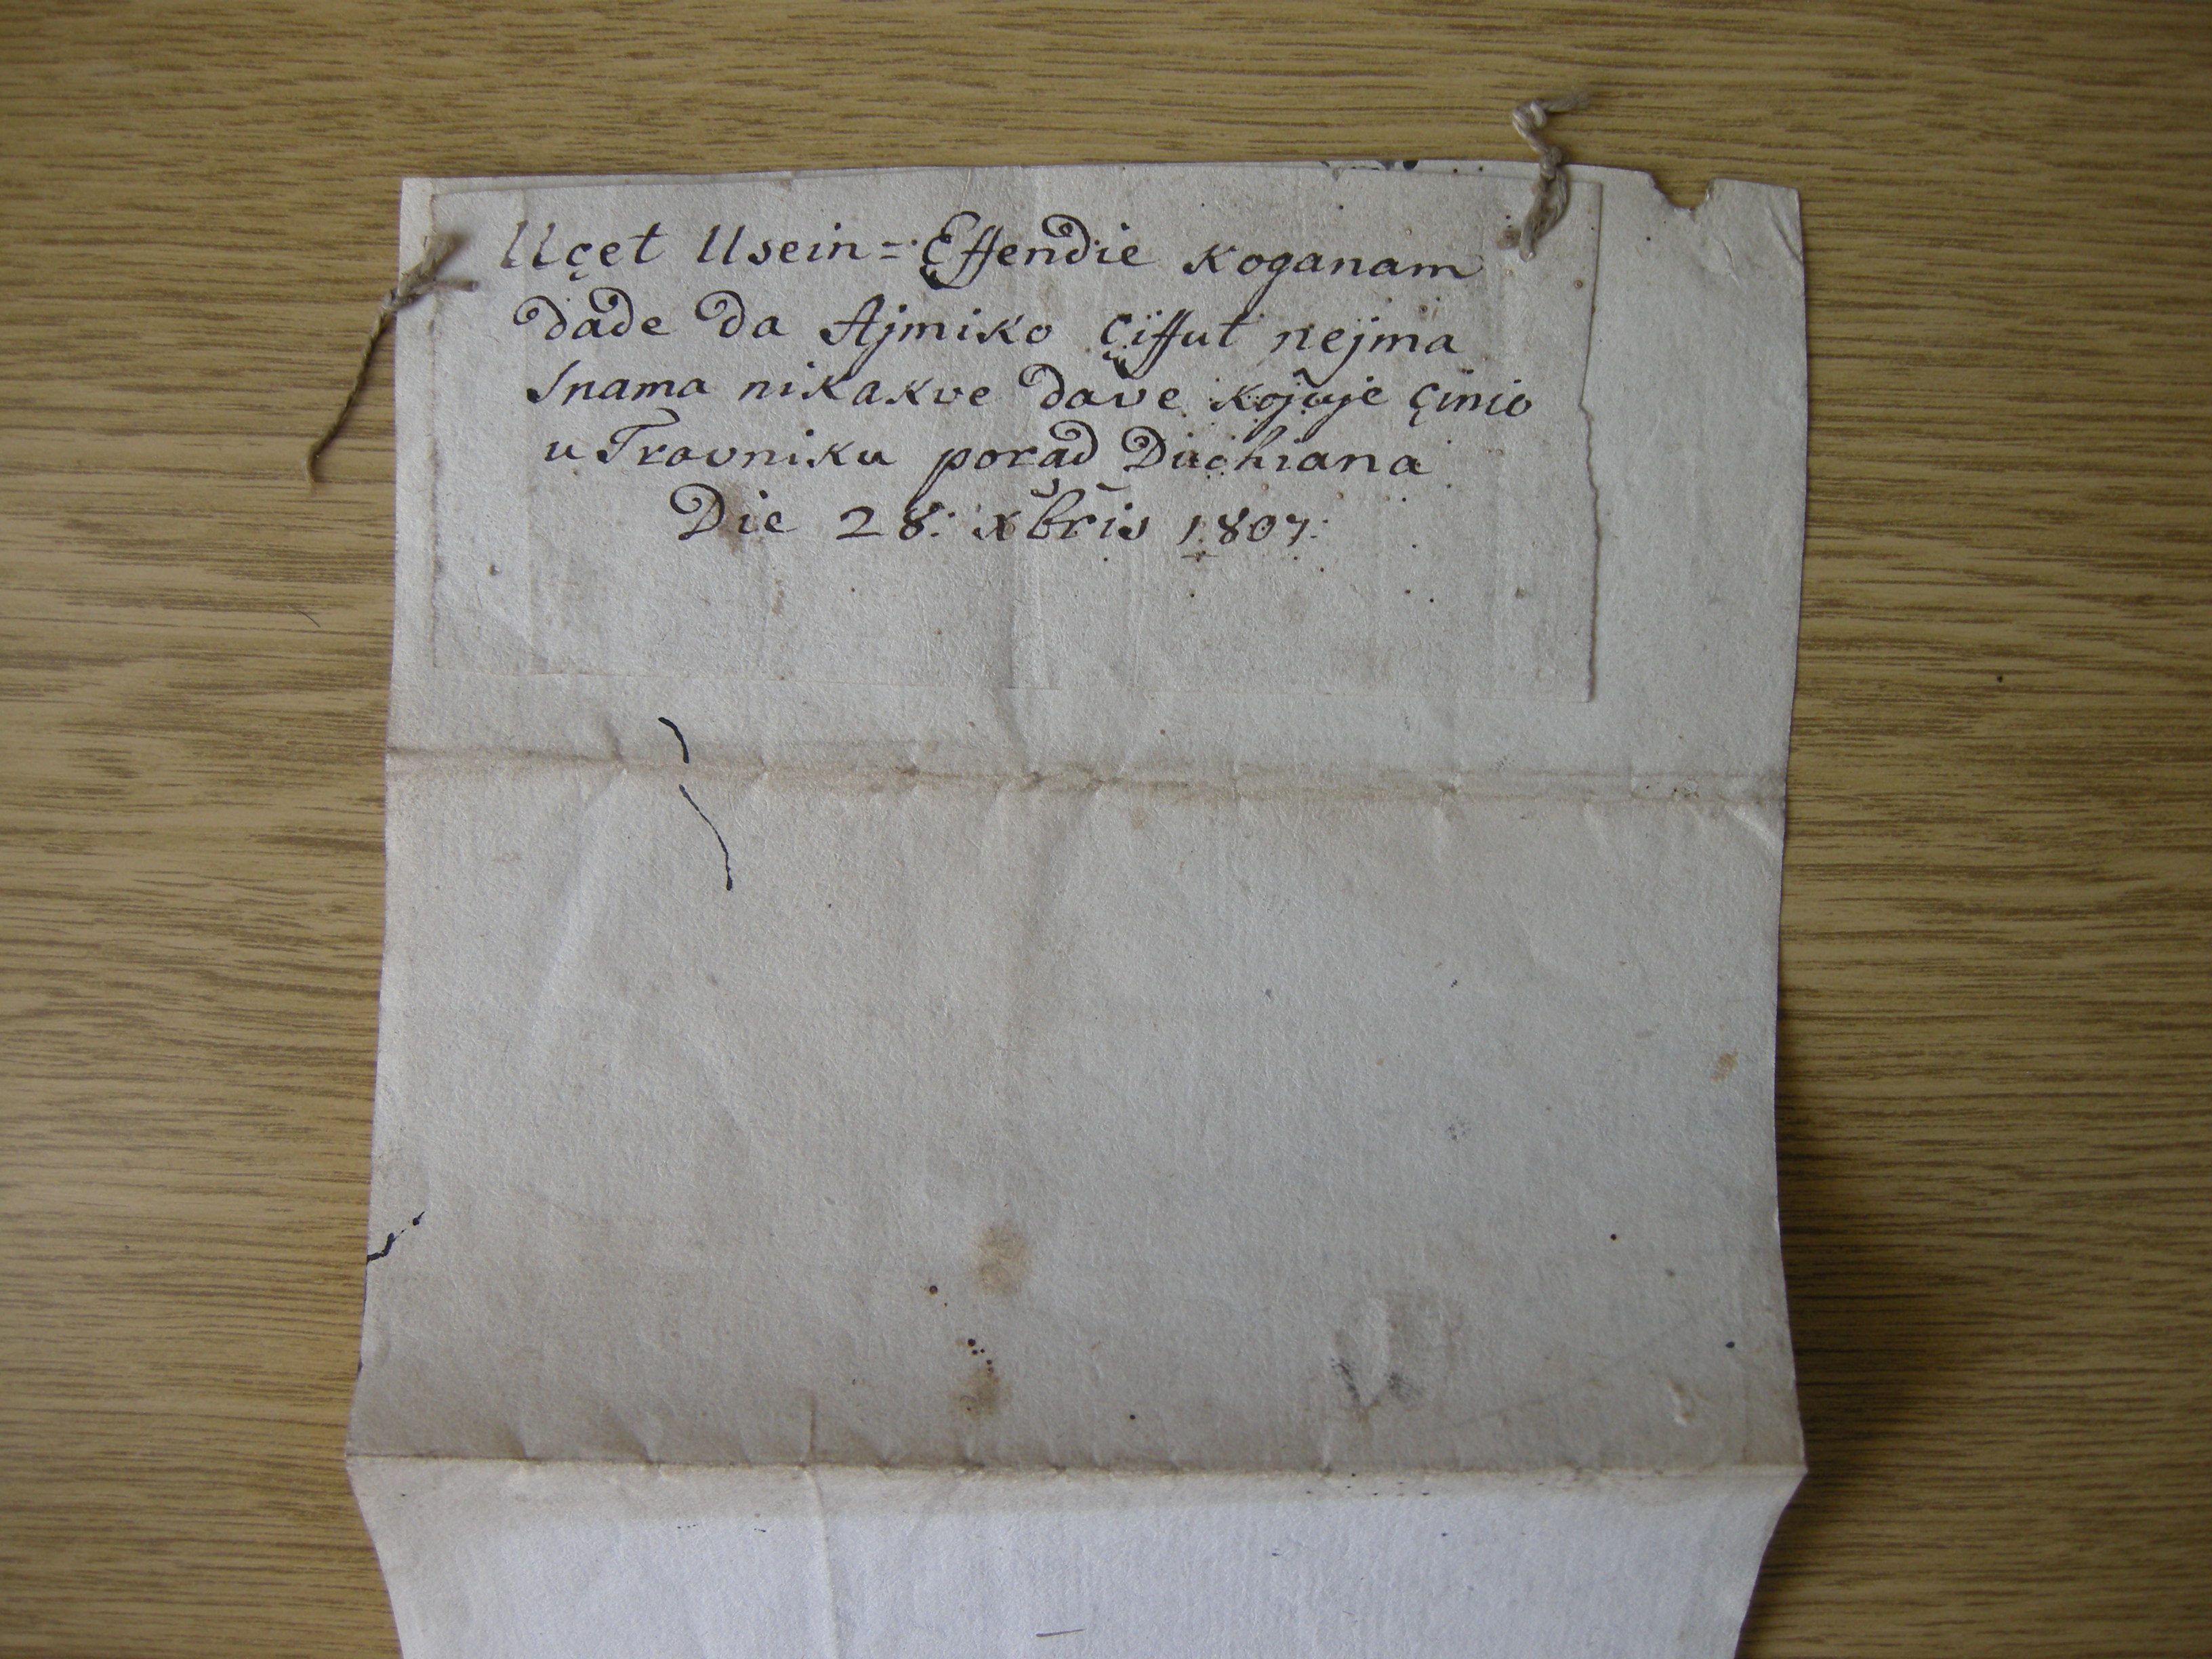 Uçet Usein=Effendie koganam
dade da Ajmiko Çiffut nejma
Snama nikakve dave kojuje çinio
u Travniku porad Dachiana
Die 28: xbris 1807: